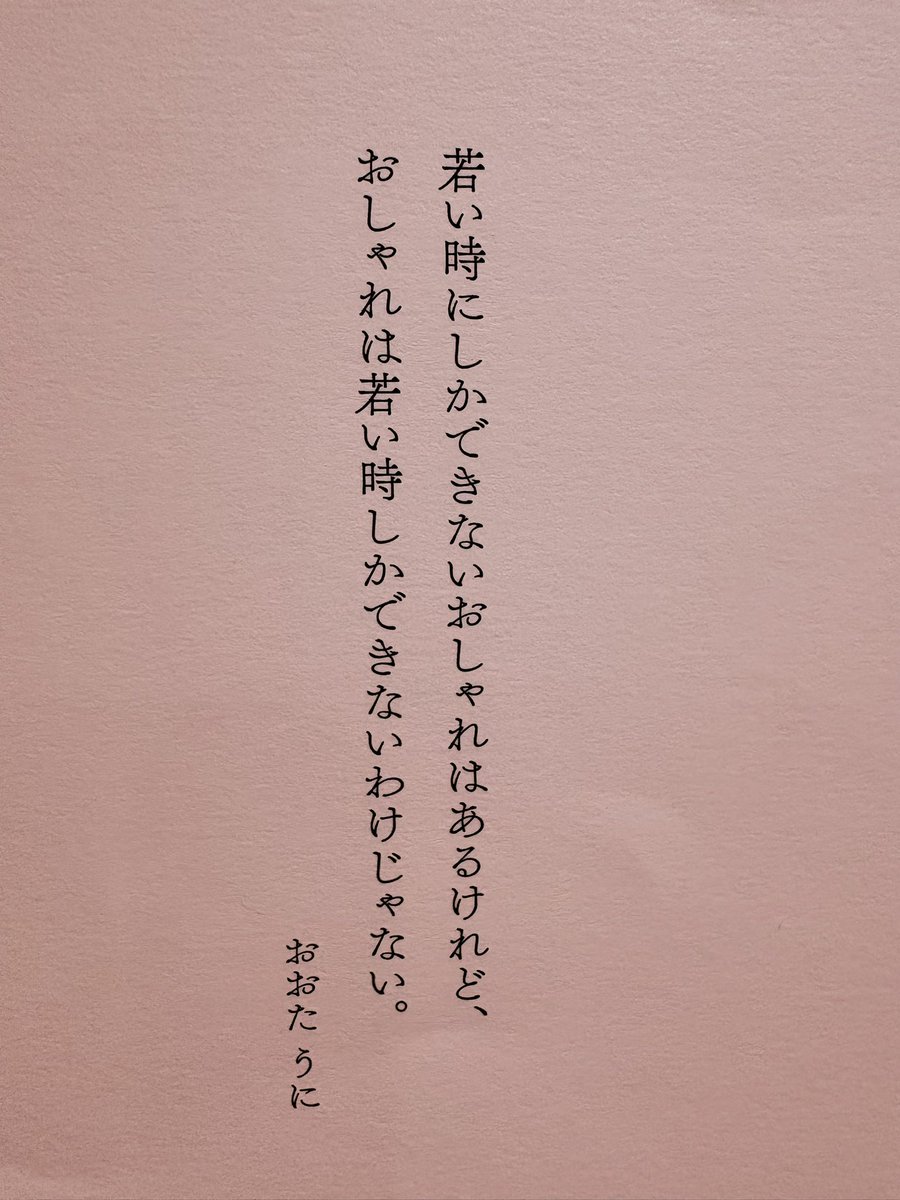 若い時にしかできないおしゃれはあるけれど、
おしゃれは若い時しかできないわけじゃない。
おおた うに